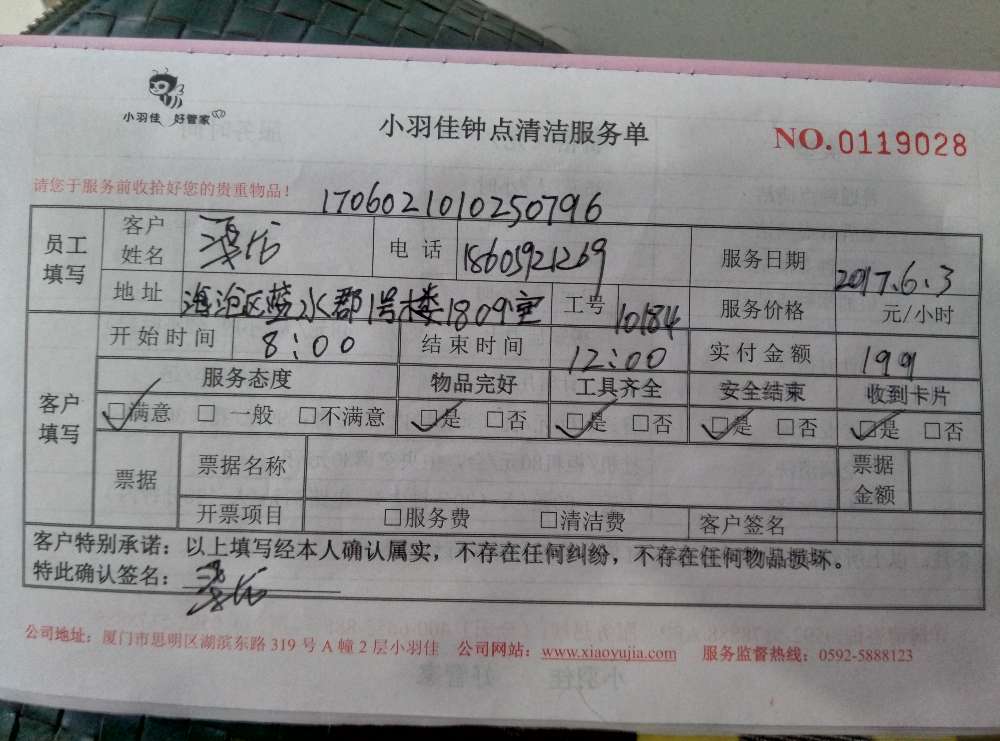 小羽佳 好管家
小羽佳钟点清洁服务单
NO.0119028
请您于服务前收拾好您的贵重物品！
1706021010250796
员工填写 客户姓名 电话 18605921269 服务日期 2017.6.3
地址 海沧区蓝水郡1号楼1809室 工号 10184 服务价格 元/小时
客户填写 开始时间 8:00 结束时间 12:00 实付金额 199
服务态度 物品完好 工具齐全 安全结束 收到卡片
☑满意 □一般 □不满意 ☑是 □否 ☑是 □否 ☑是 □否 ☑是 □否
票据 票据名称 票据金额
开票项目 □服务费 □清洁费 客户签名
客户特别承诺：以上填写经本人确认属实，不存在任何纠纷，不存在任何物品损坏。
特此确认签名：
公司地址：厦门市思明区湖滨东路 319 号 A 幢 2 层小羽佳 公司网站：www.xiaoyujia.com 服务监督热线：0592-5888123